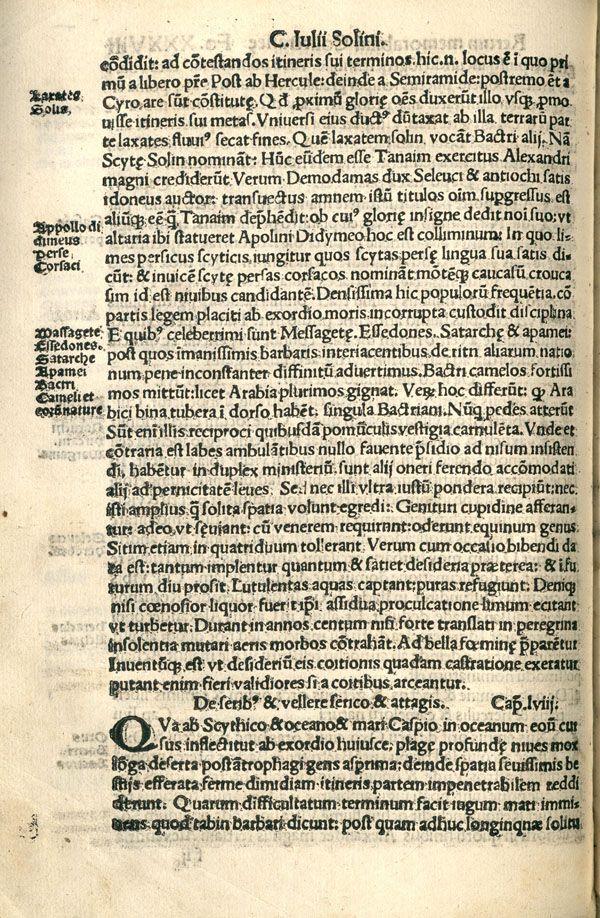 C. Iulii Solini.
cõdidit: ad cõtestandos itineris sui terminos. hic .n. locus ẽ ĩ quo pri
mũ a libero pr̃e Post ab Hercule: deinde a Semiramide: postremo ẽt a
Cyro, are sũt cõstitutę. Qd̃ ꝓximũ glorię oẽs duxerũt illo vsqꝫ ꝓmo
uisse itineris, sui metas. Vniuersi eius ductꝰ dũtaxat ab illa, terrarũ par
te laxates, fluuiꝰ secat fines. Quẽ laxatem, solin, vocãt Bactri alij. Nã
Scytę Solin nominãt: Hũc eũdem esse Tanaim exercitus Alexandri
magni crediderũt Verum Demodamas dux Seleuci & antiochi satis
idoneus auctor: transuectus amnem istũ titulos oĩm supgressus est
aliũqꝫ eẽ q̃ Tanaim depħẽdit: ob cuiꝰ glorię insigne dedit noĩ suo: vt
altaria ibi statueret Apolini Didymeo hoc est colliminum: In quo li-
mes persicus scyticis iungitur quos scytas, persę lingua sua satis di-
cũt: & inuicẽ scytę persas corsacos, nominãt mõteqꝫ caucasũ, crouca
sim id est niuibus candidantẽ. Densissima hic populorũ frequẽtia, cõ
partis legem placiti ab exordio, moris incorrupta custodit disciplina
E quibꝰ celeberrimi sunt Messagetę. Essedones. Satarchę & apamei:
post quos ĩmanissimis barbaris interiacentibus de ritn aliarum natio
num pene inconstanter diffinitũ aduertimus. Bactri camelos fortissi
mos mittũt: licet Arabia plurimos gignat. Veꝝ hoc differũt: ꝙ Ara
bici bina, tubera ĩ dorso habẽt: singula Bactriani. Nũqꝫ pedes atterũt
Sũt enĩ illis reciproci quibusdã pomũculis vestigia carnulẽta. Vnde et
cõtraria est labes ambulãtibus nullo fauente p̃sidio ad nisum insisten
di. habẽtur in duplex ministeriũ: sunt alij oneri ferendo accõmodati
alij ad pernicitatẽ leues. Sed nec illi vltra iustũ pondera recipiũt: nec
isti amplius q̃ solita spatia volunt egredi: Genituri cupidine afferan-
tur: adeo vt sęuiant: cũ venerem requirant: oderunt equinum genus
Sitim etiam, in quatriduum tollerant. Verum cum occasio, bibendi da
ta est: tantum implentur quantum & satiet desideria præterea: & ĩ fu
turum diu prosit. Lutulentas aquas captant: puras refugiunt. Deniqꝫ
nisi cœnosior liquor fuerit ip̃i, assidua, proculcatione limum ecitant
vt turbetur. Durant in annos, centum nisi forte translati in peregrina
insolentia mutari aeris morbos cõtrahãt. Ad bella fœminę p̃parẽtur
Inuentũqꝫ est vt desideriũ eis coitionis quadam castratione, exeratur
putant enim fieri validiores si a coitibus, arceantur.
De seribꝰ & vellere serico & attagis. Cap̃. lviij.
QVa ab Scythico & oceano & mari Caspio in oceanum eoũ cur
sus inflectitut ab exordio huiusce, plagę profundę niues mox
lõga deserta post ãtrophagi gens asp̃rima: deinde spatia sęuissimis be
stijs efferata ferme dimidiam itineris, partem inpenetrabilem reddi
derunt. Quarum difficultatum terminum facit iugum mati immi-
nens quod tabin barbari dicunt: post quam adhuc, longinquæ solitu
Laxates.
Solis.
Appollo di
dimeus
Perse
Corsaci
Massagetę
Essedones.
Satarche
Apamei
Bactri
Cameli et
eorũ nature